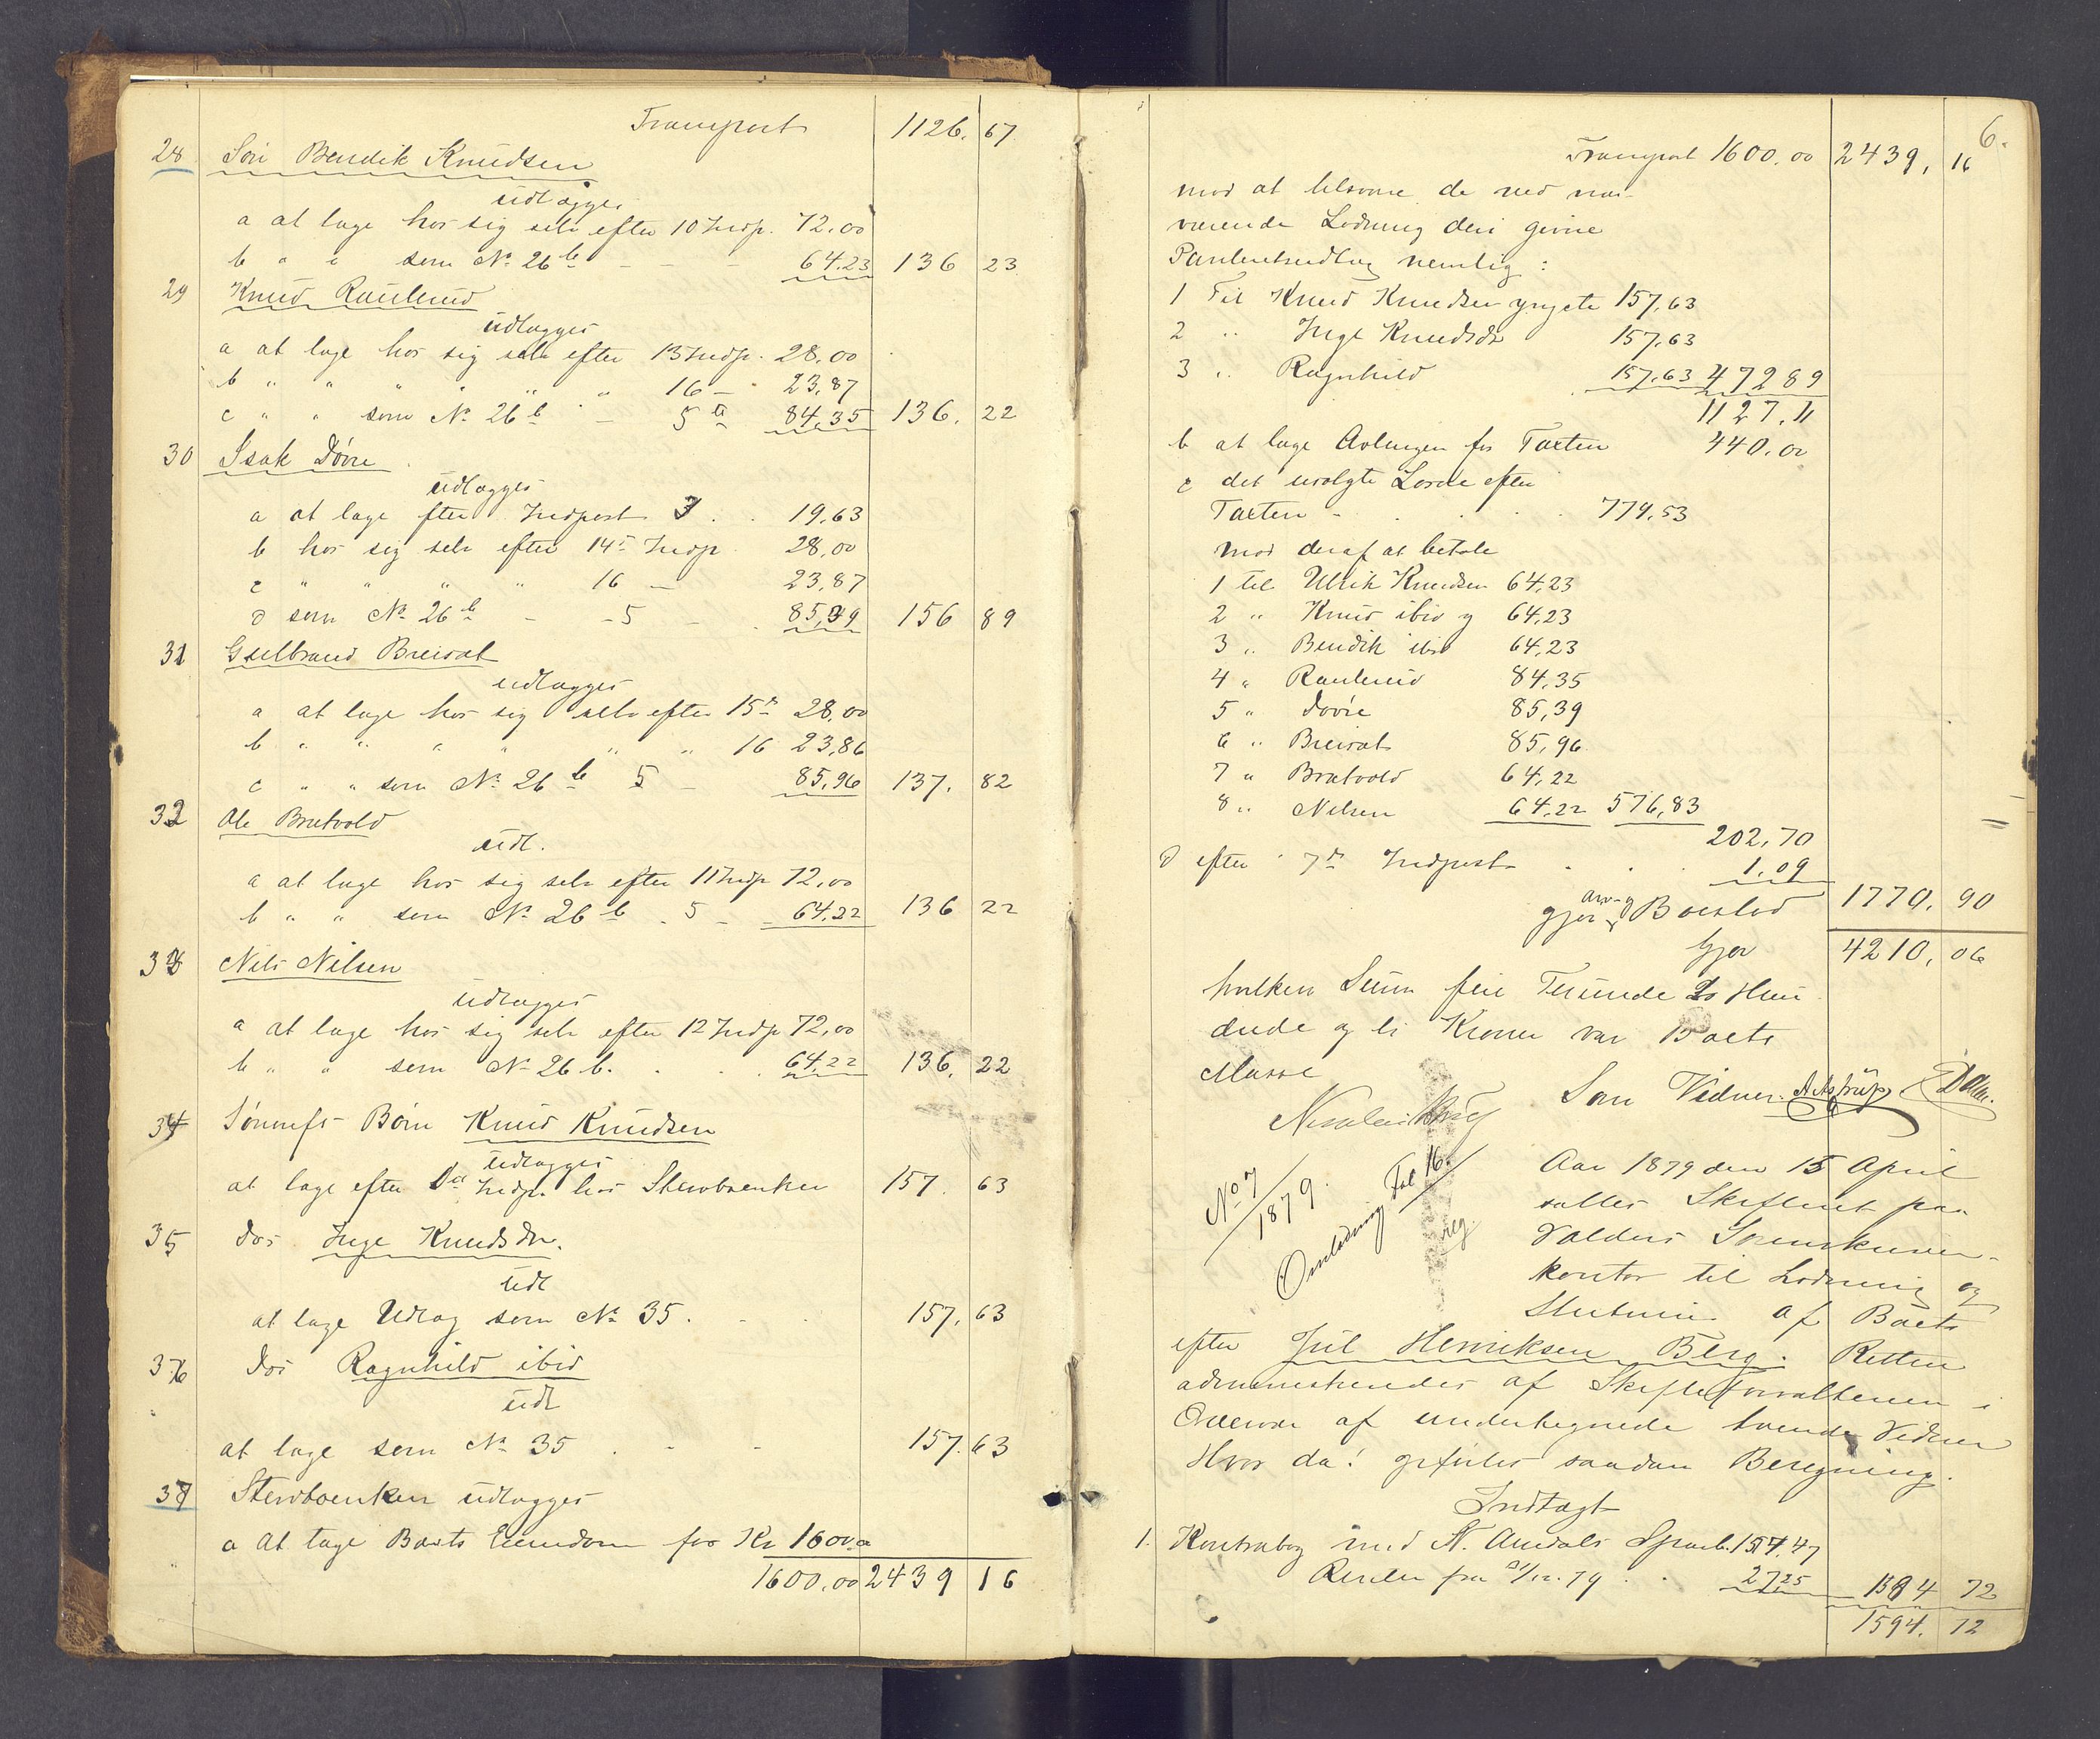 Transport 1126. 67
28 Søn Bendik Knudsen
udlægges
a at tage hos sig selv efter 10 Indp. 72,00
b " " som No 26 b - - - 64,23 136 23
29 Knud Raulund
udlægges
a at tage hos sig selv efter 13 Indp. 28,00
b " " " " " " 16 - 23,87
c " " som No 26 b - 5 a 84,35 136. 22
30 Isak Døvre
udlægges
a at tage efter Indpost 3 . . 19,63
b hos sig selv efter 14de Indp 28,00
c " " " " 16 - 23,87
d som No 26 b - - 5 - . 85,39 156 89
31 Gulbrand Breivat
udlægges
a at tage hos sig selv efter 15de 28,00
b " " " " " " 16 23,86
c " " som No 26 b 5 - 85,96 137. 82
32 Ole Bratvold
udl.
a at tage hos sig selv efter 11 Indp 72,00
b " " som No 26 b . 5 - - 64,22 136 22
33 Nils Nilsen
udlægges
a at tage hos sig selv efter 12 Indp 72,00
b " " som No 26 b. . . . 64,22 136. 22
34 Sønnens Børn Knud Knudsen
udlægges
at tage efter Indp. hos Stervboenken 157. 63
35 Dos Inge Knudsdtr.
udl
at tage Udlæg som No 35. - . 157. 63
36 Dos Ragnhild ibid
udl
at tage som No 35 . - - 157. 63
37 Stervboenken udlægges
a At tage Boets Eiendom for Kr 1600.00
1600,00 2439 16
6.
Transport 1600.00 2439, 16
mod at tilsvare de ved nær-
værende Lodning deri givne
Panteudlæg nemlig:
1 Til Knud Knudsen yngste 157,63
2 " Inge Knudsdtr 157,63
3 " Ragnhild 157,63 472 89
1127.11
b at tage Avlingen for Taxten 440,00
c det usolgte Løsøre efter
Taxten - . . . . 779,53
mod deraf at betale
1 til Ulrik Knudsen 64,23
2 " Knud ibid y 64,23
3 " Bendik ibid 64,23
4 " Raulund 84,35
5 " Døvre 85,39
6 " Breivat 85,96
7 " Bratvold 64,22
8 " Nilsen 64,22 576,83
202,70
d efter 7de Indpost . . . 1.09
gjør arv- og Boeslod 1770. 90
Gjør 4210. 06
hvilken Sum fire Tusinde To Hun
drede og ti Kroner var Boets
Masse
Som Vidner. A Astrup
No 7
1879.
Omlodning Fol 16.
Aar 1879 den 15 April
sattes Skifteret paa
Valders Sorenskriver-
kontor til Lodning og
Slutning af Boets
efter Jul Henriksen Berg. Retten
administreredes af Skifteforvalteren i
Overvær af undertegnede tvende Vidner
Hvor da! opførtes saadan Beregning.
Indtægt
1. Kontrabog med N. Aurdals Sparb. 1567.47
Renter fra 31/12. 79 . . 27 25 1594 72
1594. 72